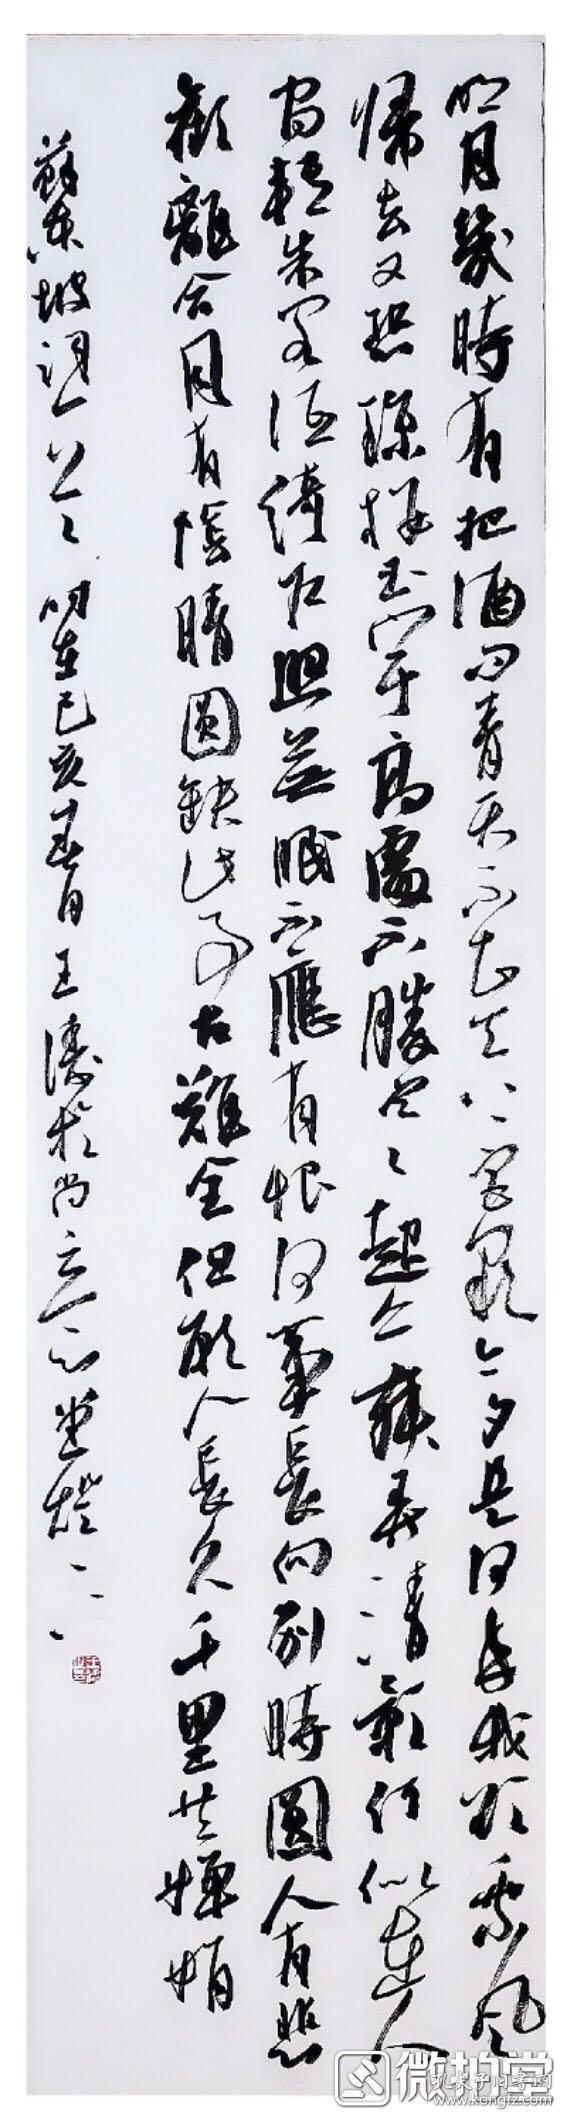 明月幾時有把酒问青天不知天上宫闕今夕是何年我欲乘风
歸去又恐瓊樓玉宇高處不勝寒起舞弄清影何似在人
间轉朱阁低綺户照無眠不應有恨何事長向别時圆人有悲
歡離合月有陰晴圆缺此事古難全但願人長久千里共嬋娟
蘇东坡词一首 时在己亥春月王濤於尚
微拍堂
孔夫子旧书网
www.kongfz.com